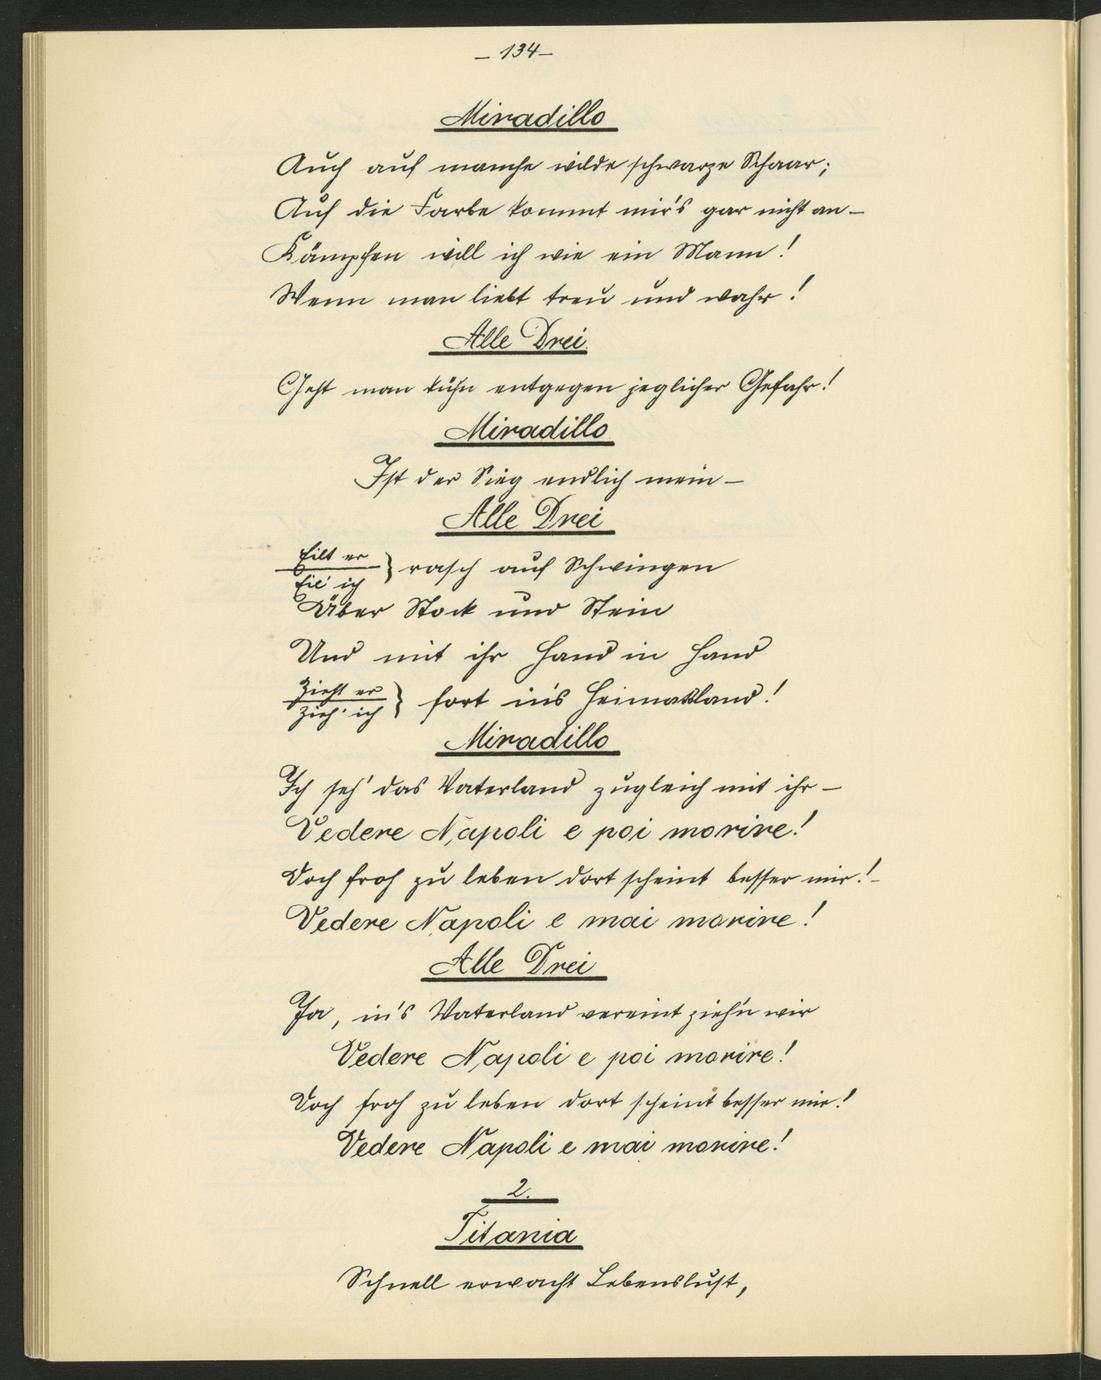 – 134 –
Miradillo
Auch auf manche wilde schwarze Schaar;
Auf die Farbe kommt mir's gar nicht an –
Kämpfen will ich wie ein Mann!
Wenn man liebt treu und wahr!
Alle Drei
Geht man kühn entgegen jeglicher Gefahr!
Miradillo
Ist der Sieg endlich mein –
Alle Drei
Eilt er
Eil' ich } rasch auf Schwingen
Über Stock und Stein
Und mit ihr Hand in Hand
Zieht er
Zieh' ich } fort in's Heimatland!
Miradillo
Ich seh' das Vaterland zugleich mit ihr –
Vedere Napoli e poi morire!
Doch froh zu leben dort scheint besser mir! –
Vedere Napoli e mai morire!
Alle Drei
Ja, in's Vaterland vereint zieh'n wir
Vedere Napoli e poi morire!
Doch froh zu leben dort scheint besser mir!
Vedere Napoli e mai morire!
2.
Titania
Schnell erwacht Lebenslust,